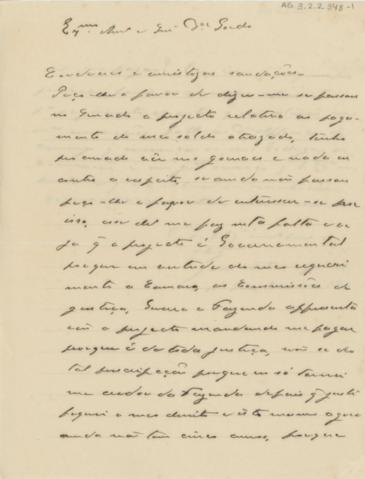 AG 3.2.2.348-1
Exmo. Amo. e Snr. Dr. Gordo
Cordeaes e amistozas saudações.
Peço-lhe o favor de dizer-me se passou
no Senado o projecto relativo ao paga-
mento do meu soldo atrazado, tenho
procurado ver nos jornaes e nada en
contro a respeito, se ainda não passou
peço-lhe o favor de interessar-se por
isso, esse di me faz muita falta e ve
ja q̃ o projecto é Governamental
porque em virtude do meu requeri
mento a Camara, as Commissões de
Justiça, Guerra e Fazenda apresenta
rão o projecto mandando me pagar
porque é de toda justiça, não se dá
tal prescripção porque eu só tornei
me credor da Fazenda depois q̃ justi
fiquei o meu direito e isto mesmo agora
ainda não tem cinco annos, porque